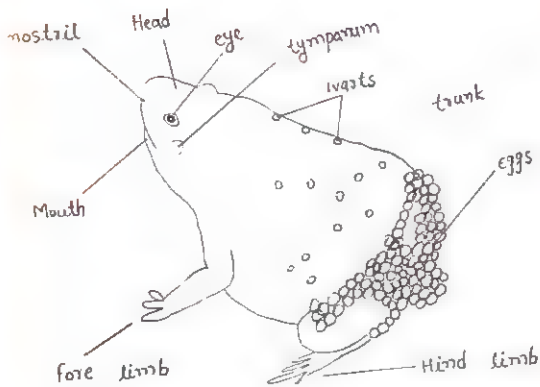 nostril
Head
eye
tympanum
warts
trunk
eggs
Mouth
Fore limb
Hind limb